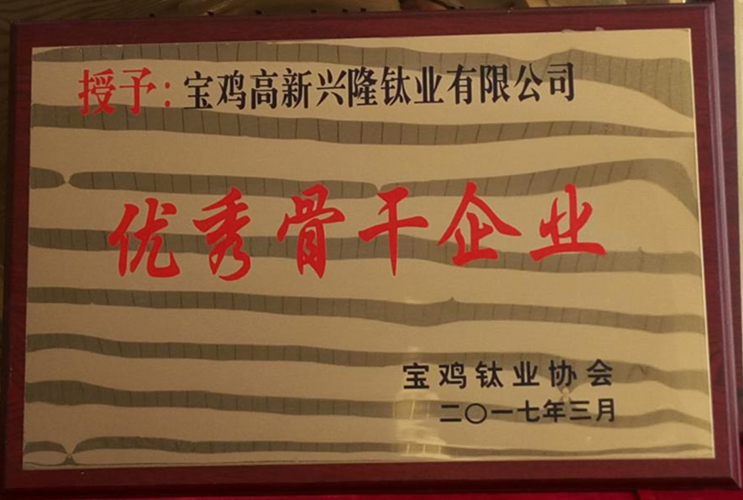 授予:宝鸡高新兴隆钛业有限公司
优秀骨干企业
宝鸡钛业协会
二〇一七年三月